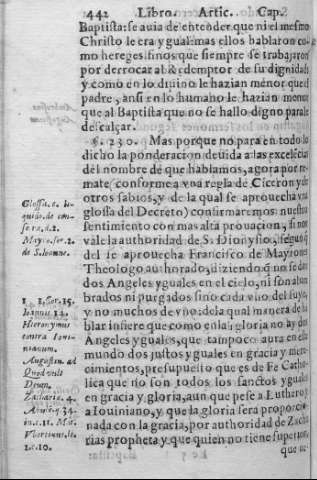 1442 Libro. Artic. Cap.
Baptista: se auia de entender que ni el mesmo
Christo le era ygual: mas ellos hablaron co-
mo hereges finos que siempre se trabajaron
por derrocar al Redemptor de su dignidad:
y como en lo diuino le hazian menor que el
padre, ansi en lo humano le hazian menor
que al Baptista que no se hallo digno para le
descalçar.
§. 230. Mas porque no para en todo lo
dicho la ponderacion deuida a las excelẽcias
del nombre de que hablamos, agora por re-
mate, conforme a vna regla de Ciceron y de
otros sabios, y de la qual se aprouecha vna
glossa del Decreto) confirmaremos nuestro
sentimiento con mas alta prouacion, si nos
vale la authoridad de S. Dionysio, segun q̃
del se aprouecha Francisco de Mayrones
Theologo authorado, diziendo q̃ no se dẽ
dos Angeles yguales en el cielo, ni son alum
brados ni purgados sino cada vno del suyo,
y no muchos de vno: de la qual manera de ha
blar infiere que como en la gloria no ay dos
Angeles yguales, que tampoco aura en el
mundo dos justos yguales en gracia y mere-
cimientos, presupuesto que es de Fe Catho-
lica que no son todos los sanctos yguales
en gracia y gloria, aun que pese a Luthero y
a Iouiniano, y que la gloria sera proporcio-
nada con la gracia, por authoridad de Zacha
rias propheta y que quien no tiene superior,
que no
Glossa. c. li-
quido. de con-
secra. d. 2.
Mayro. ser. 2.
de S. Ioanne.
1. Cor. 15.
Ioannis. 14.
Hieronymus
contra Ioui-
nianum.
Augustin. ad
Quod vult
Deum.
Zachariæ. 4.